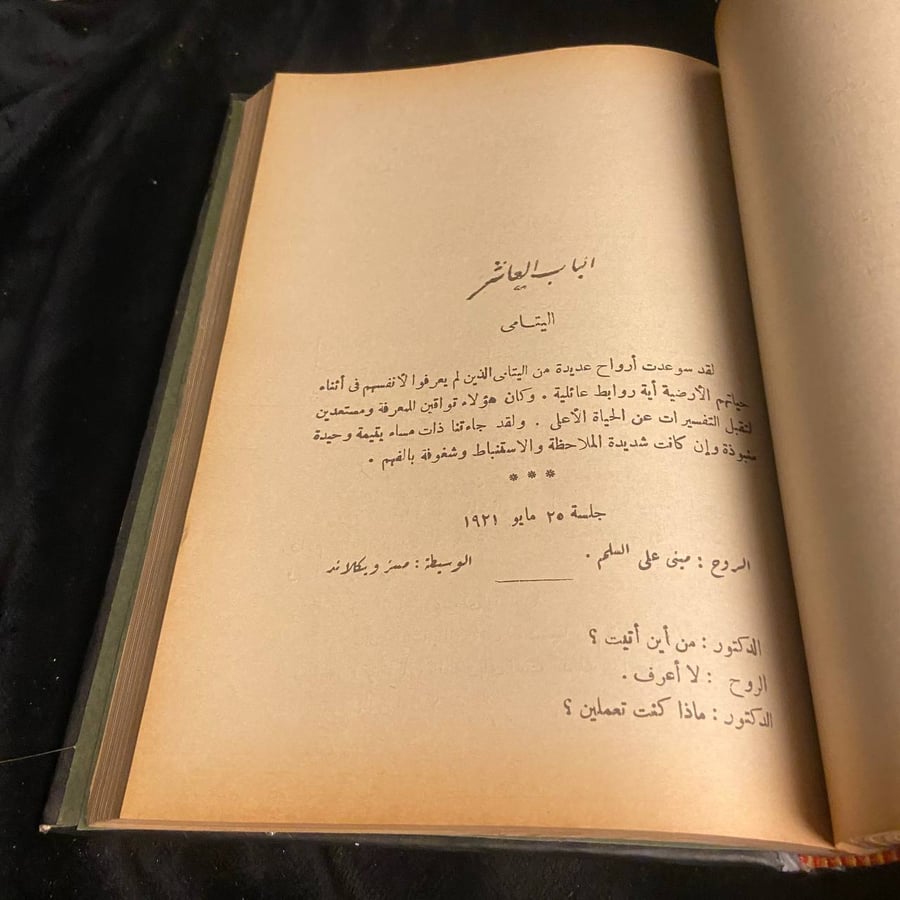 الباب العاشر
اليتامى
لقد سوعدت أرواح عديدة من اليتامى الذين لم يعرفوا لأنفسهم فى أثناء
حياتهم الأرضية أية روابط عائلية . وكان هؤلاء تواقين للمعرفة ومستعدين
لتقبل التفسيرات عن الحياة الأعلى . ولقد جاءتنا ذات مساء يتيمة وحيدة
منبوذة وإن كانت شديدة الملاحظة والاستنباط وشغوفة بالفهم .
* * *
جلسة ٢٥ مايو ١٩٢١
الروح : مينى على السلم . الوسيطة : مسز ويكلاند
الدكتور : من أين أتيت ؟
الروح : لا أعرف .
الدكتور : ماذا كنت تعملين ؟